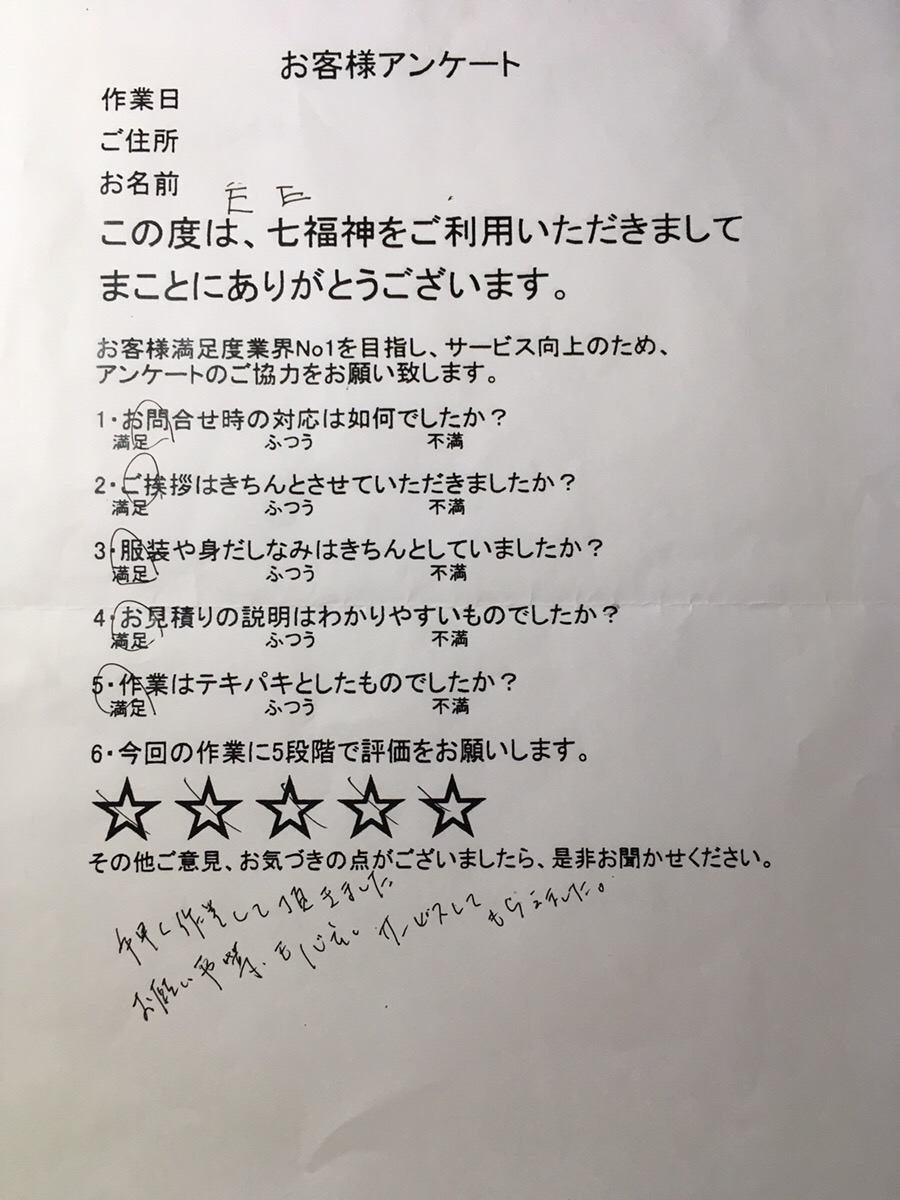 お客様アンケート
作業日
ご住所
お名前
この度は、七福神をご利用いただきまして
まことにありがとうございます。
お客様満足度業界No1を目指し、サービス向上のため、
アンケートのご協力をお願い致します。
1・お問合せ時の対応は如何でしたか？
満足 ふつう 不満
2・ご挨拶はきちんとさせていただきましたか？
満足 ふつう 不満
3・服装や身だしなみはきちんとしていましたか？
満足 ふつう 不満
4・お見積りの説明はわかりやすいものでしたか？
満足 ふつう 不満
5・作業はテキパキとしたものでしたか？
満足 ふつう 不満
6・今回の作業に5段階で評価をお願いします。
その他ご意見、お気づきの点がございましたら、是非お聞かせください。
作業して頂きました
お願い サービスして もらえました。